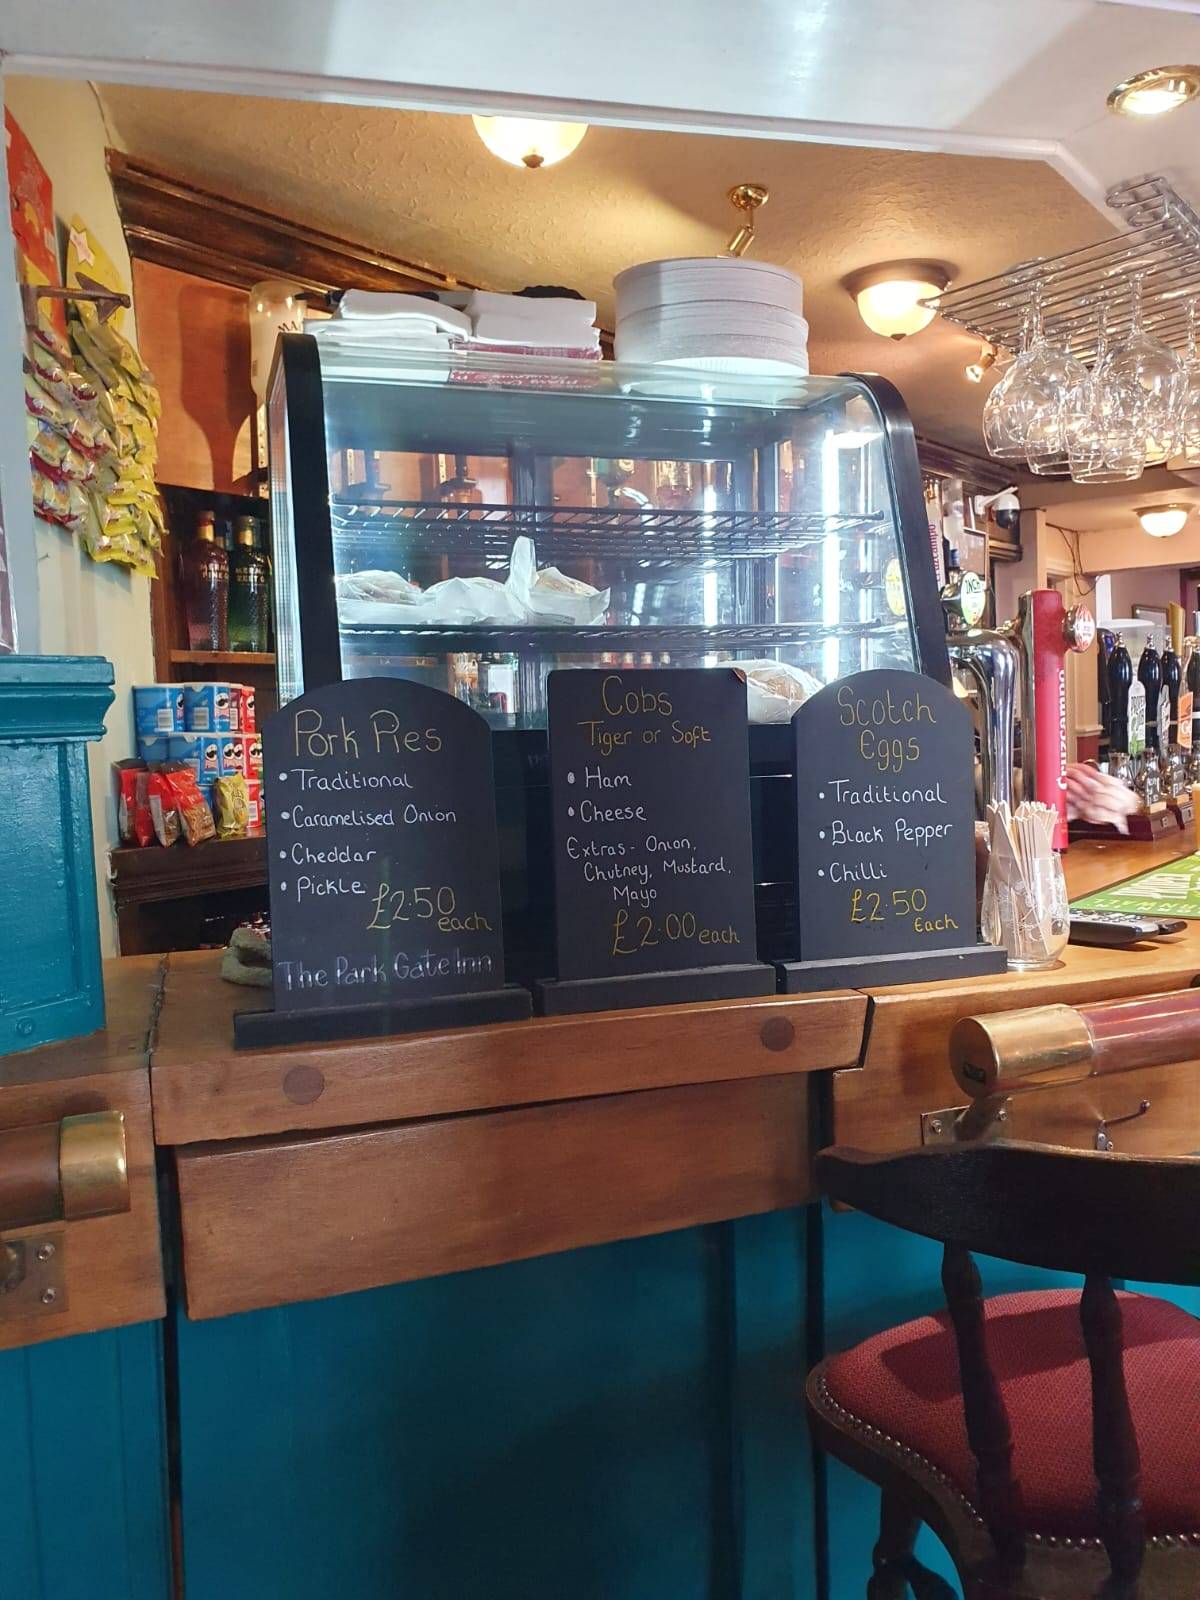 Pork Pies
• Traditional
• Caramelised Onion
• Cheddar
• Pickle
£2.50
each
The Park Gate Inn
Cobs
Tiger or Soft
• Ham
• Cheese
Extras - Onion,
Chutney, Mustard,
Mayo
£2.00 each
Scotch
Eggs
• Traditional
• Black Pepper
• Chilli
£2.50
Each
Cruzcampo